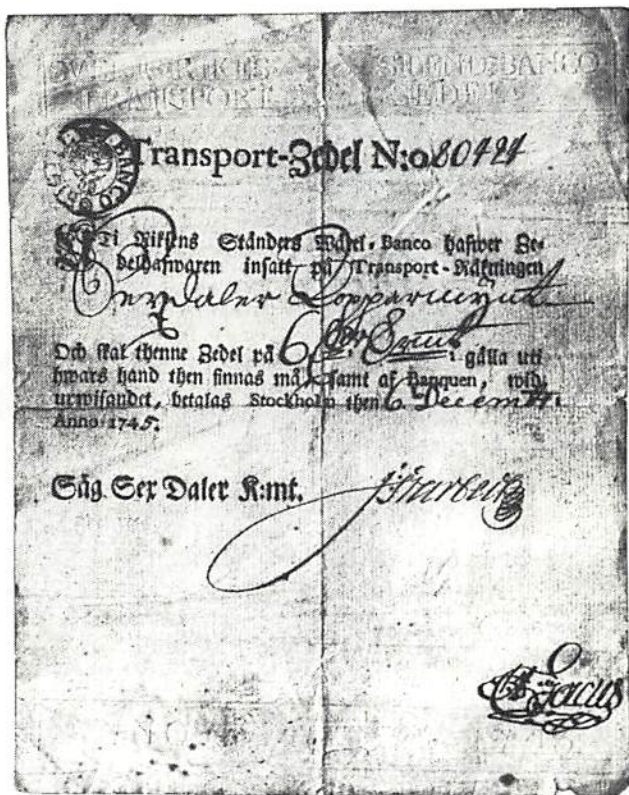 SWERIKES RIKES STÄNDERS BANCO
TRANSPORT SEDEL
Transport-Zedel N:o 80424
Ti Riksens Ständers Wäxel-Banco hafwer Ze-
delhafwaren insatt på Transport-Räkningen
Sex daler Koppar mynt
Och skal thenne Zedel på 6 dlr gälla uti
hwars hand then finnas må, samt af Banquen, wid
upwisandet, betalas Stockholm then 6 Decemb.
Anno 1745.
Säg Sex Daler K:mt.